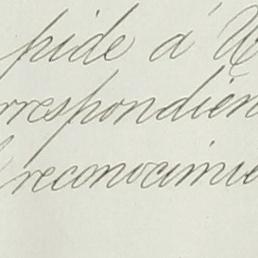 pide á U
rrespondien
reconocimie